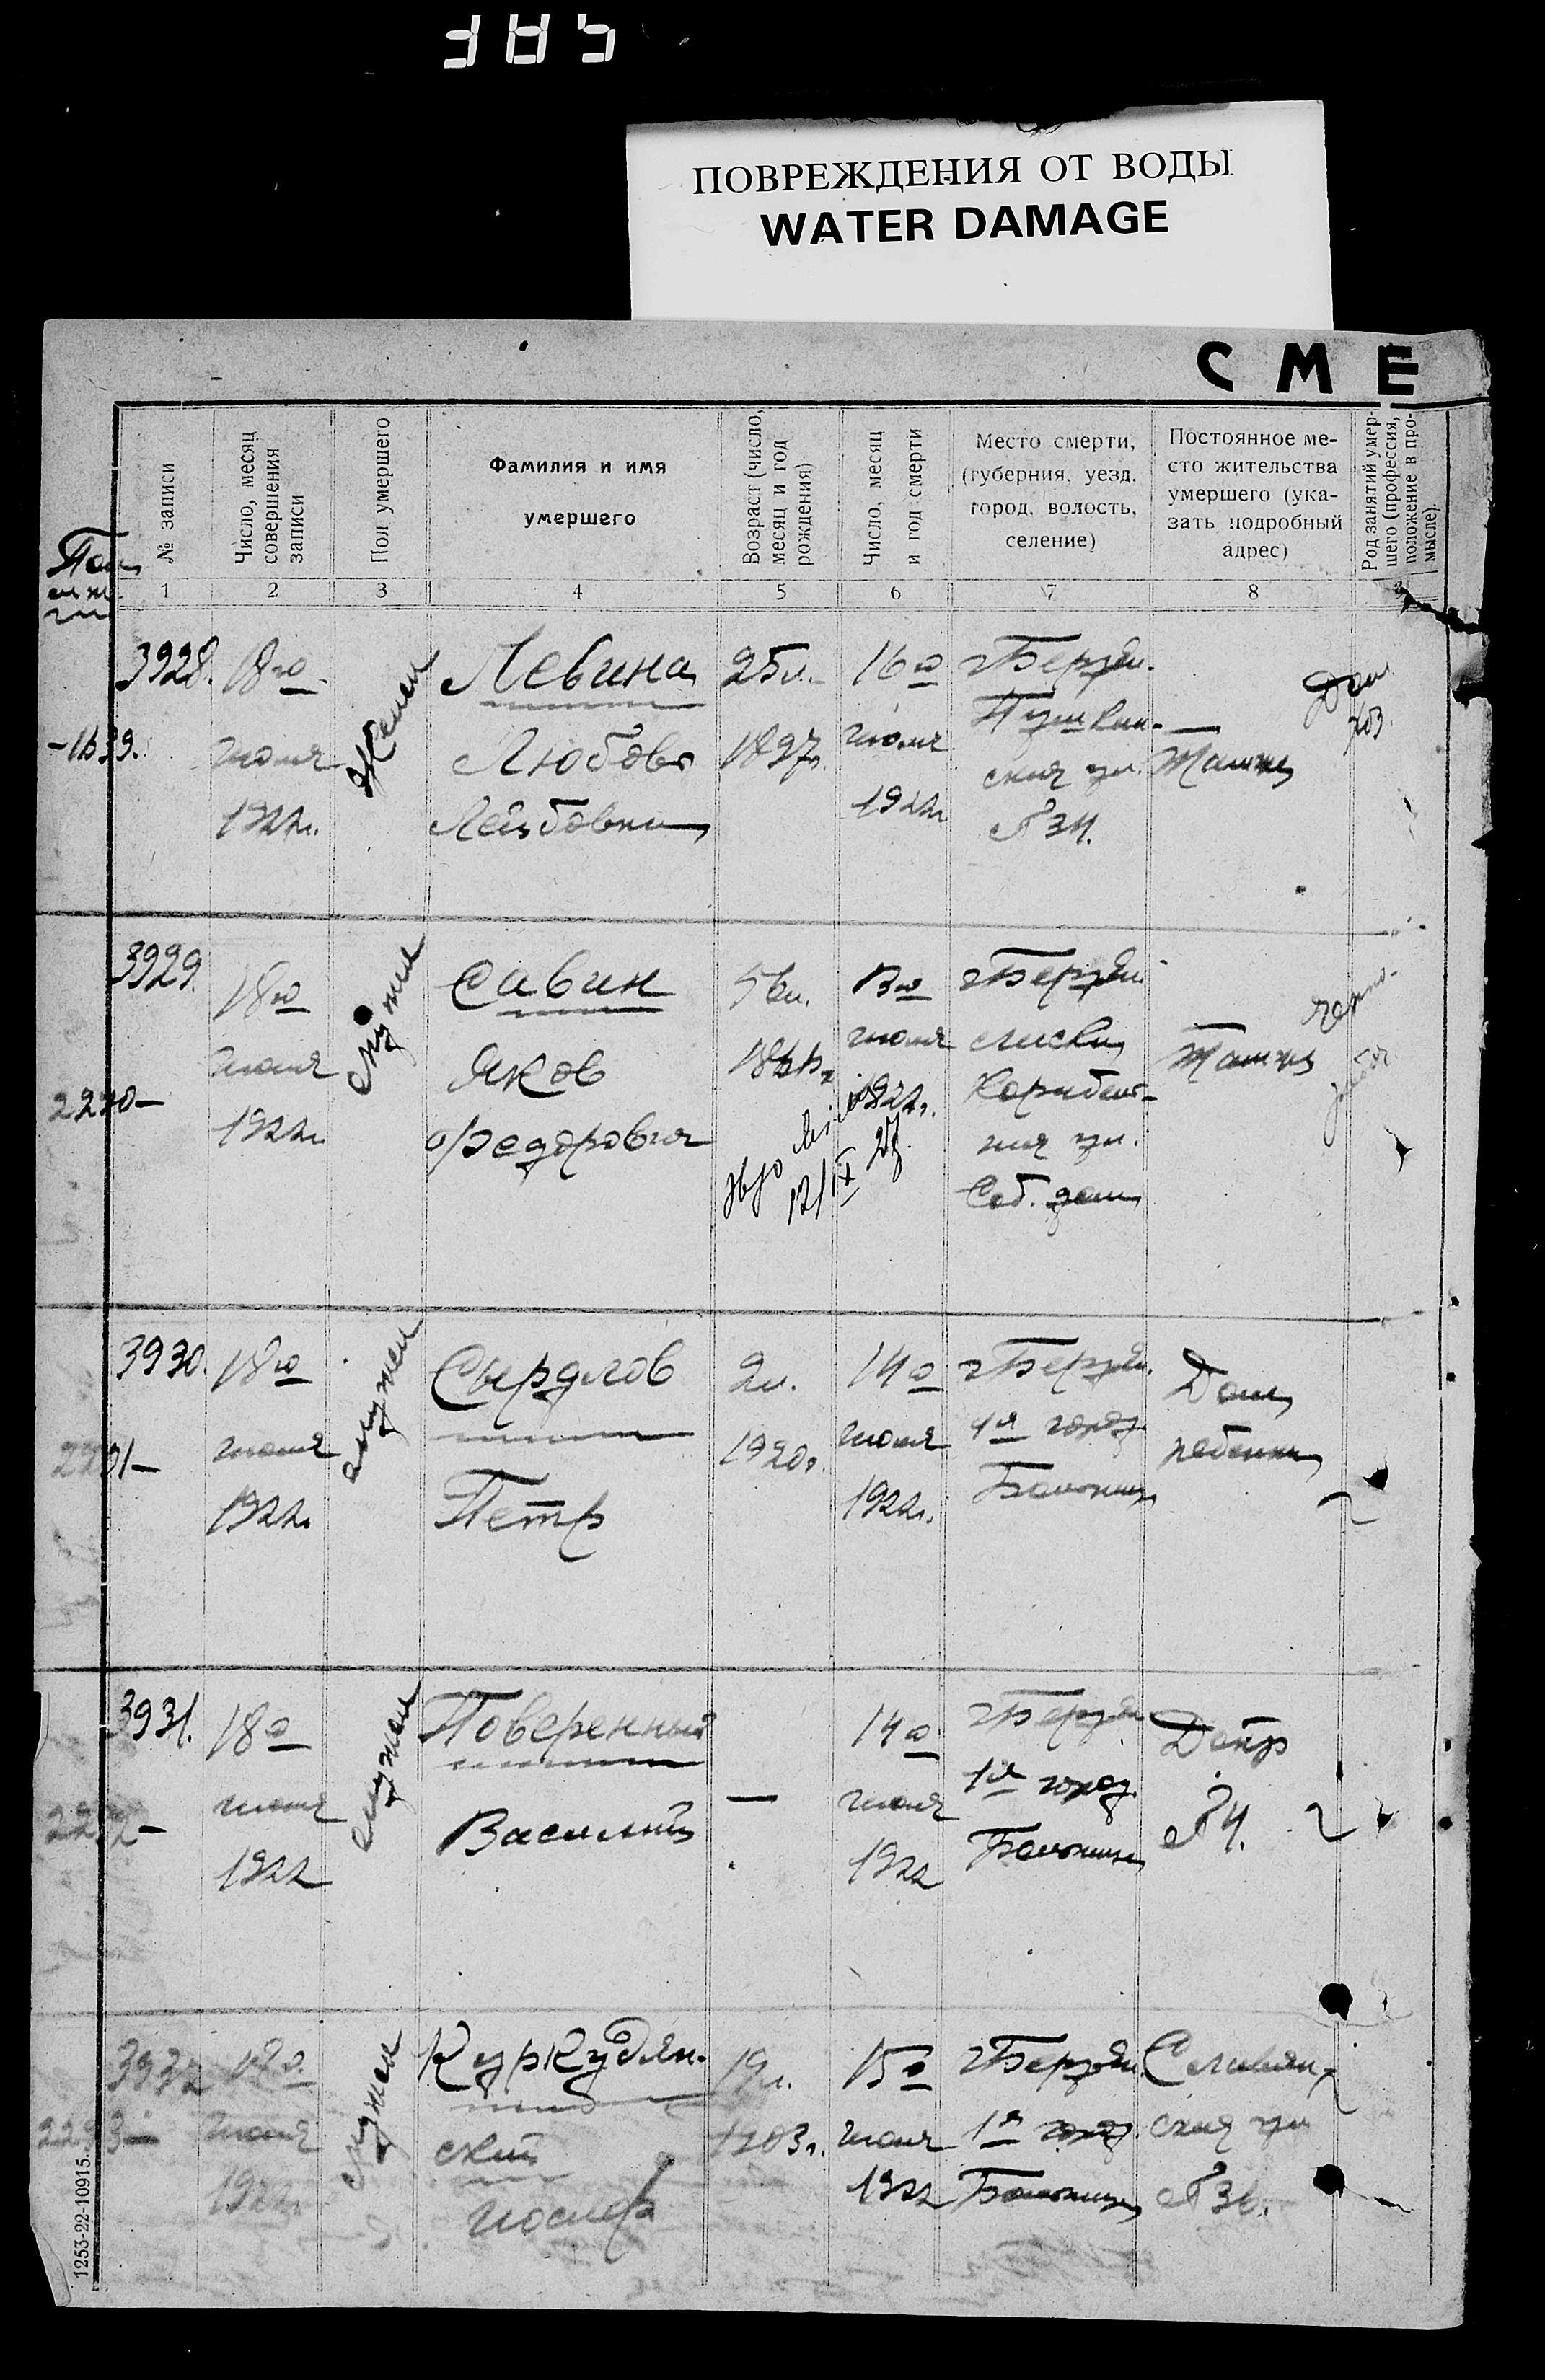 385
ПОВРЕЖДЕНИЯ ОТ ВОДЫ
WATER DAMAGE
СМЕ
№ записи
Число, месяц
совершения
записи
Пол умершего
Фамилия и имя
умершего
Возраст (число,
месяц и год
рождения)
Число, месяц
и год смерти
Место смерти,
(губерния, уезд,
город, волость,
селение)
Постоянное ме-
сто жительства
умершего (ука-
зать подробный
адрес)
Род занятий умер-
шего (профессия,
положение в про-
мысле).
1 2 3 4 5 6 7 8
3928.
18го
июня
1922г.
Женск
Левина
Любовь
Лейбовна
25л.
1897г.
16го
июня
1922г
г Бердян.
Пушкин-
ская ул.
№ 34.
Дом
хоз.
3929.
18го
июня
1922г.
Мужск
Савин
Яков
Федорович
июня
1922г.
г Бердян.
ул.
Соб. дом
Черно-
12/IX 27
3930.
18го
июня
1922г.
мужск
Сырдлов
Петр
2л.
1920г.
14го
июня
1922г.
г Бердян.
1я город.
Больница
Дом
ребенка
3931.
18го
июня
1922
мужск
Поверенный
Василий
—
14го
июня
1922
г Бердян
1я город
Больница
№ 4.
3932
18го
июня
1922г.
Мужск
Куркудян-
ский
Иосиф
19л.
1903г.
15го
июня
1922
г Бердян
1я город.
Больница
ская ул
1253-22-10915.